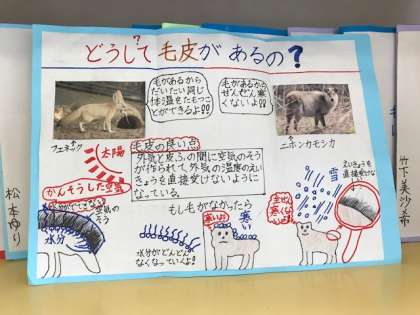 どうして毛皮があるの?
?
毛があるから
だいたい同じ
体温をたもつこ
とができるよ!!
毛があるから
ぜんぜん寒
くないよ!!
フェネック
ニホンカモシカ
太陽
毛皮の良い点
外気と皮ふの間に空気のそう
が作られて、外気の温度のえい
きょうを直接受けないように
なっている。
かんそうした空気
空気の
そう
水分
もし毛がなかったら
水分がどんどん
なくなっていくよ!
寒いよ
寒い
雪
えいきょうを
直接受けな
い
松本ゆり
竹下美沙希